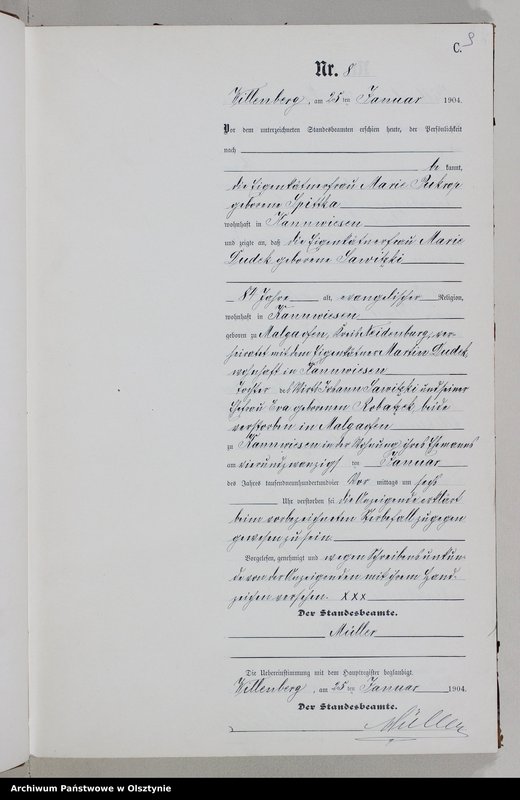 C. 9
Nr. 8
Willenberg, am 25ten Januar 1904.
Vor dem unterzeichneten Standesbeamten erschien heute, der Persönlichkeit
nach
be kannt,
die Eigenkätnerfrau Marie
geborene
wohnhaft in Kannwiesen
und zeigte an, daß die Eigenkätnerfrau Marie
Dudek geborene Sawitzki
84 Jahre alt, evangelischer Religion,
wohnhaft in Kannwiesen
geboren zu Malgaofen, Kreis Neidenburg, ver-
heiratet mit dem Eigenkätner Martin Dudek,
wohnhaft in Kannwiesen
Tochter des Wirts Johann Sawitzki und seiner
Ehefrau Eva geborenen Robatzek, beide
verstorben in Malgaofen
zu Kannwiesen in der Wohnung ihres Ehemanns
am vierundzwanzigsten Januar
des Jahres tausendneunhundertundvier Vor mittags um sechs
Uhr verstorben sei. die Anzeigende erklärt
beim vorbezeichneten Sterbefall zugegen
gewesen zu sein.
Vorgelesen, genehmigt und wegen Schreibensunkun-
de von der Anzeigenden mit ihrem Hand-
zeichen versehen. xxx
Der Standesbeamte.
Müller
Die Uebereinstimmung mit dem Hauptregister beglaubigt.
Willenberg, am 25ten Januar 1904.
Der Standesbeamte.
Müller
Archiwum Państwowe w Olsztynie